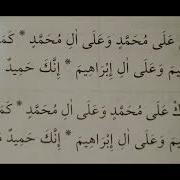 عَلَى مُحَمَّدٍ وَعَلَى اٰلِ مُحَمَّدٍ * كَمَا
وَعَلَى اٰلِ إِبْرَاهِيمَ * إِنَّكَ حَمِيدٌ
عَلَى مُحَمَّدٍ وَعَلَى اٰلِ مُحَمَّدٍ * كَمَا
وَعَلَى اٰلِ إِبْرَاهِيمَ * إِنَّكَ حَمِيدٌ